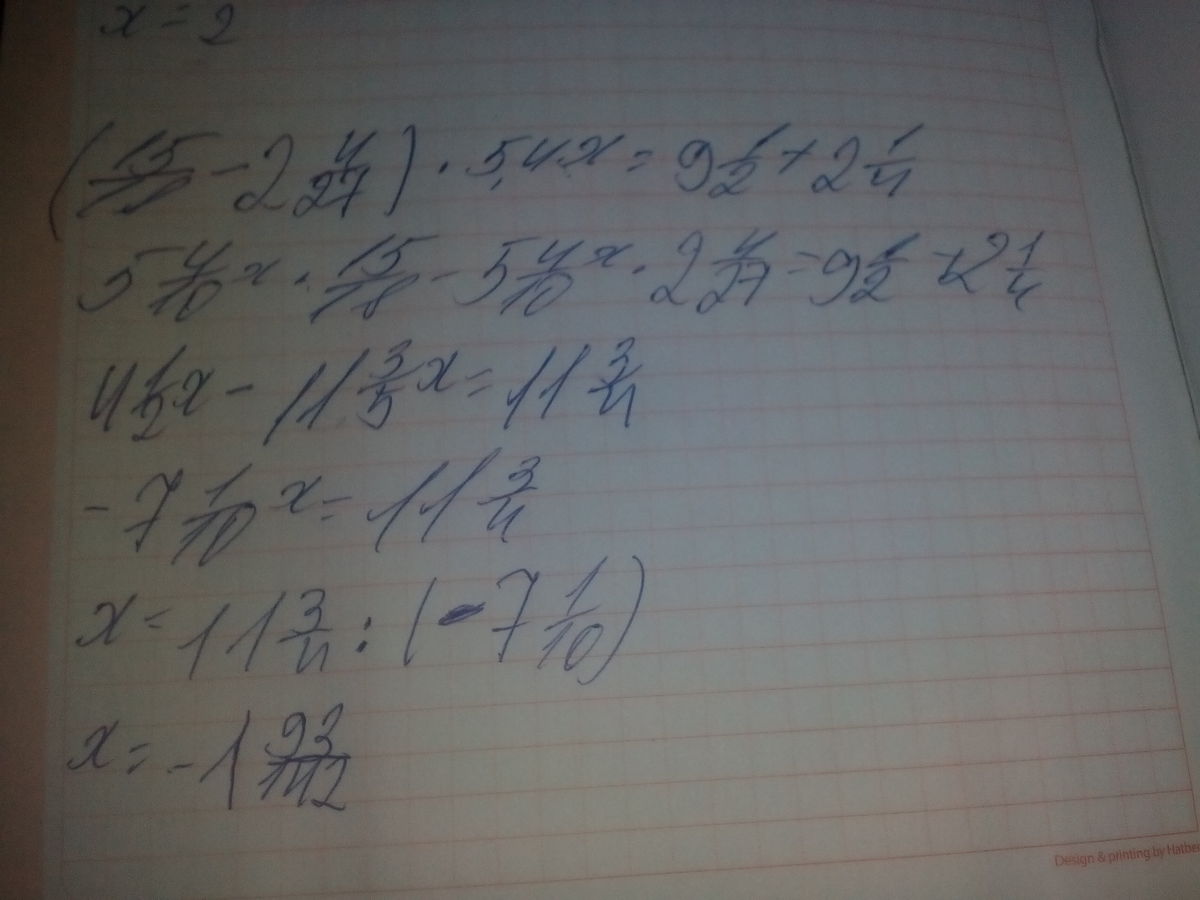 x = 2
(15/18 - 2 4/27) · 5,4x = 9 1/2 + 2 1/4
5 4/10 x · 15/18 - 5 4/10 x · 2 4/27 = 9 1/2 + 2 1/4
4 1/2 x - 11 3/5 x = 11 3/4
- 7 1/10 x = 11 3/4
x = 11 3/4 : (-7 1/10)
x = -1 93/142
Design & printing by Hatber